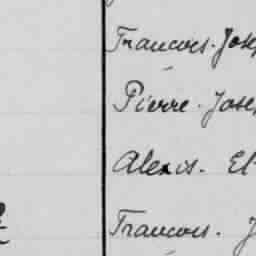 Francois. Jose
Pierre. Jose
Alexis. El
Francois. J